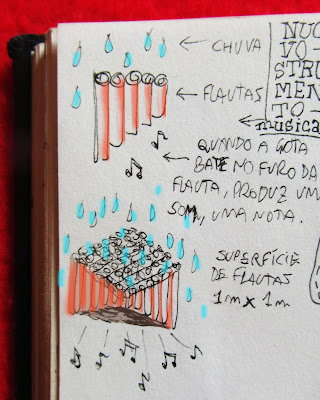 CHUVA
FLAUTAS
NUO
VO
STRU
MEN
TO
musica
QUANDO A GOTA
BATE NO FURO DA
FLAUTA, PRODUZ UM
SOM, UMA NOTA.
SUPERFÍCIE
DE FLAUTAS
1m x 1m